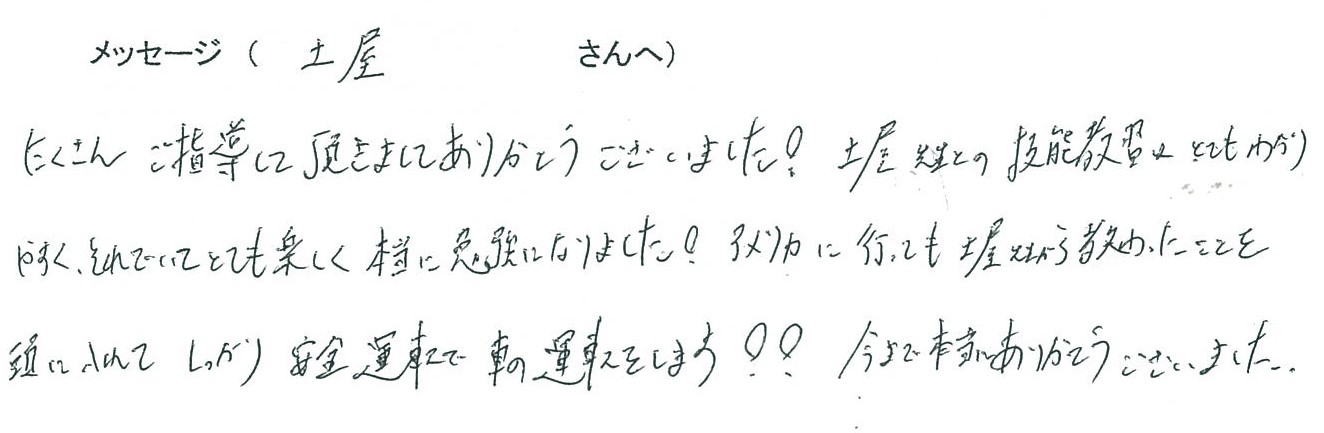 メッセージ（ 土屋 さんへ）
たくさんご指導して頂きましてありがとうございました！ 土屋先生との技能教習はとてもわかり
やすく、それでいてとても楽しく本当に勉強になりました！ アメリカに行っても土屋先生から教わったことを
頭に入れてしっかり安全運転で車の運転をします！！ 今まで本当にありがとうございました。